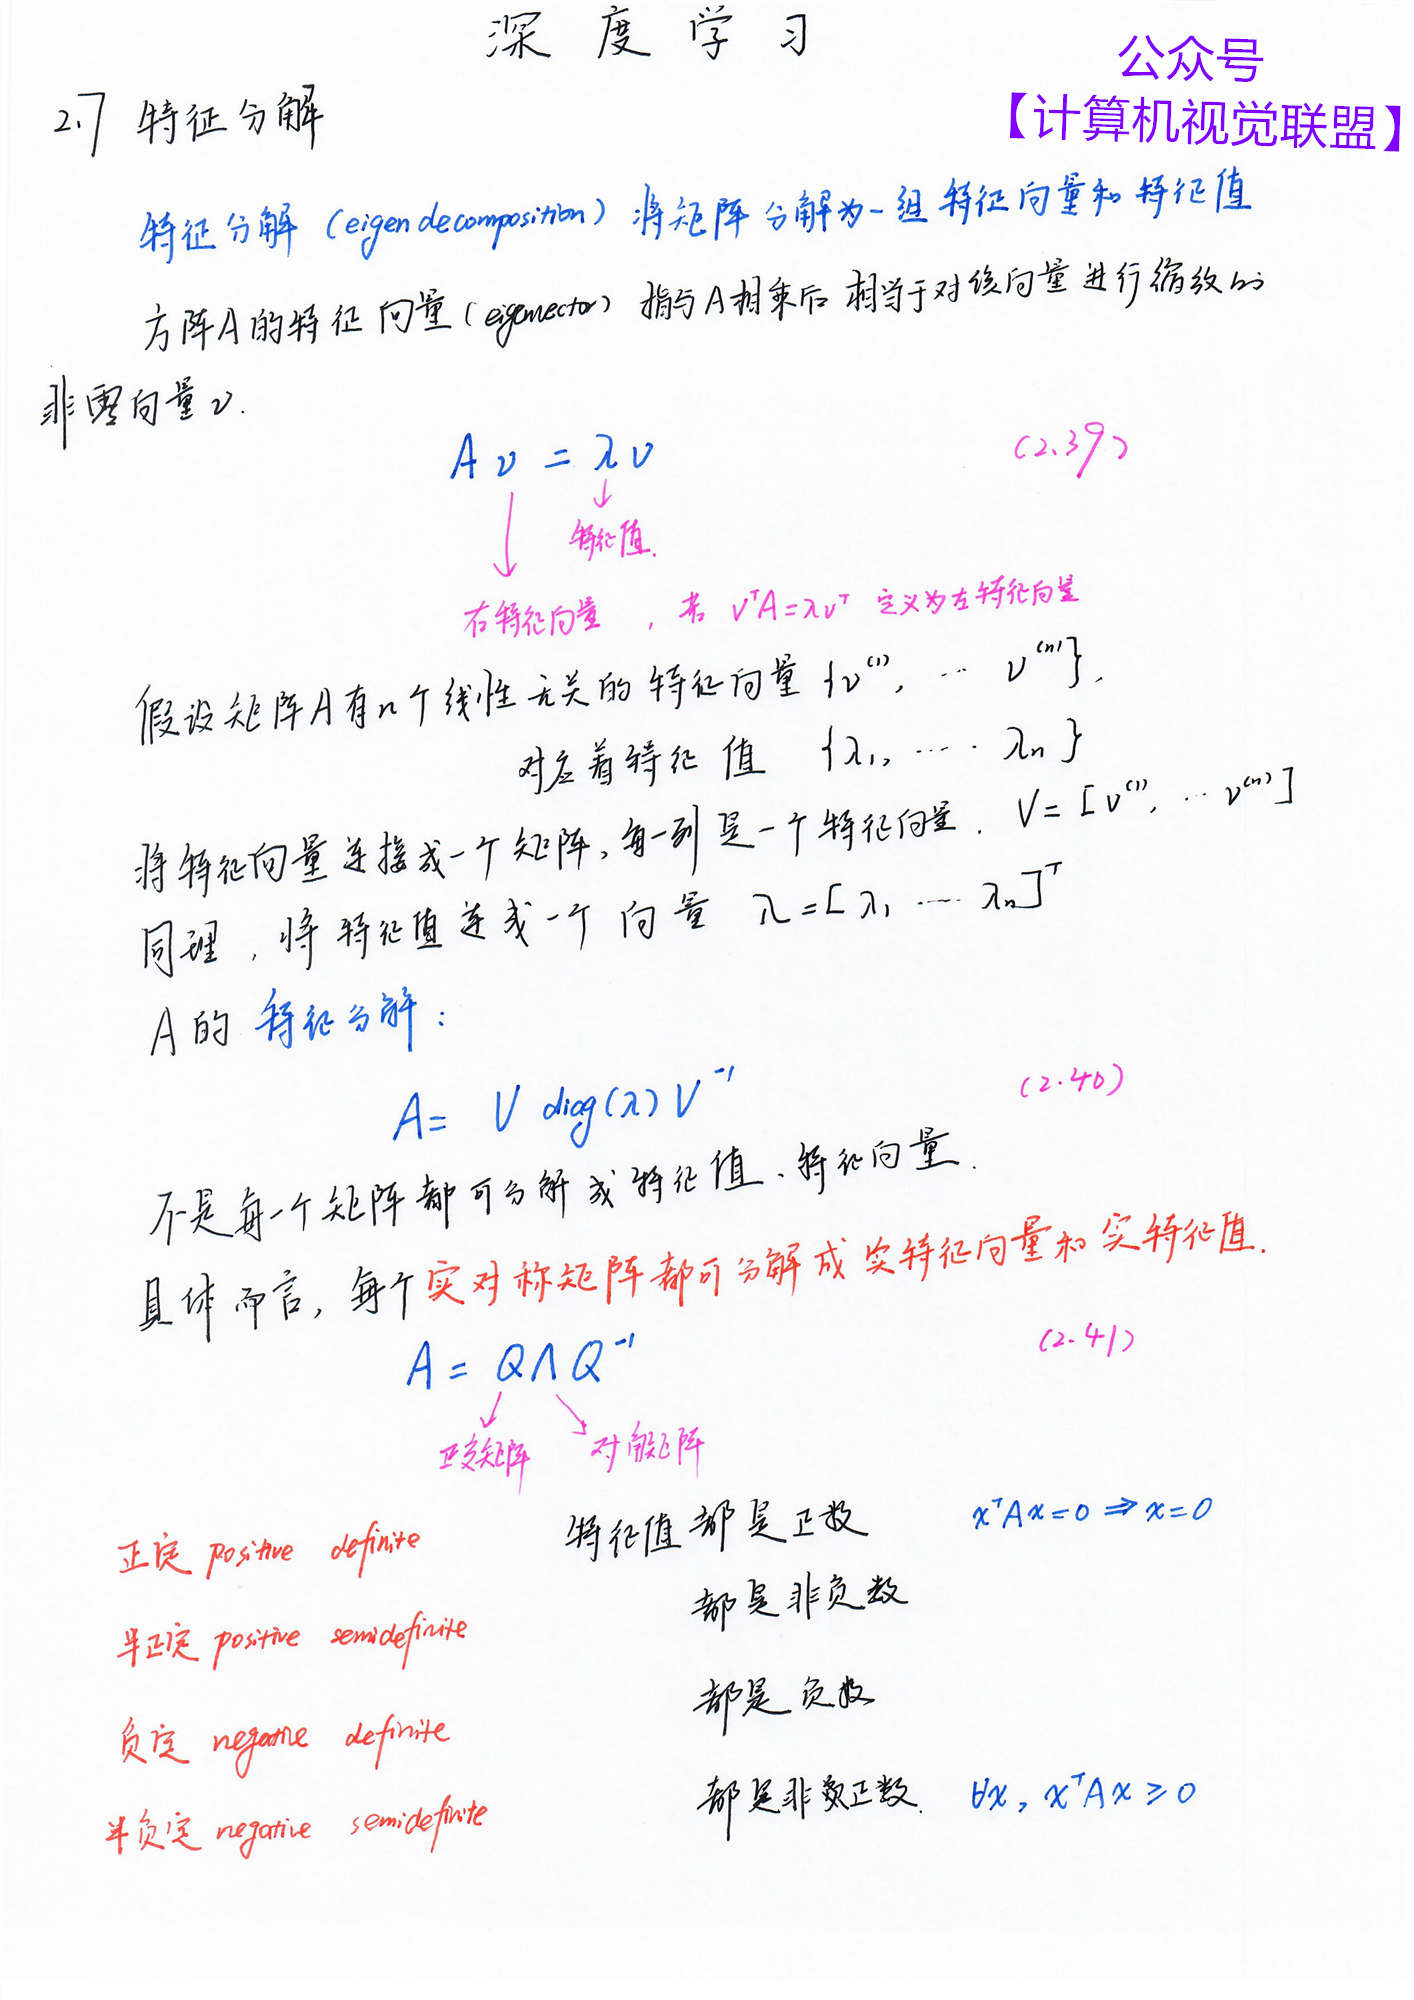 深度学习
公众号
【计算机视觉联盟】
2.7 特征分解
特征分解（eigen decomposition）将矩阵分解为一组特征向量和特征值
方阵A的特征向量（eigenvector）指与A相乘后相当于对该向量进行缩放的
非零向量ν.
Aν = λν (2.39)
特征值.
右特征向量，若 νᵀA=λνᵀ 定义为左特征向量
假设矩阵A有n个线性无关的特征向量 {ν⁽¹⁾, … ν⁽ⁿ⁾},
对应着特征值 {λ₁, …. λₙ}
将特征向量连接成一个矩阵,每一列是一个特征向量. V=[ν⁽¹⁾, … ν⁽ⁿ⁾]
同理,将特征值连成一个向量 λ=[λ₁ …. λₙ]ᵀ
A的特征分解：
A= V diag(λ) V⁻¹ (2.40)
不是每一个矩阵都可分解成特征值、特征向量.
具体而言,每个实对称矩阵都可分解成实特征向量和实特征值.
A = QΛQ⁻¹ (2.41)
正交矩阵 对角矩阵
正定 positive definite 特征值都是正数 xᵀAx=0 ⇒ x=0
半正定 positive semidefinite 都是非负数
负定 negative definite 都是负数
半负定 negative semidefinite 都是非正数. ∀x, xᵀAx ≥ 0